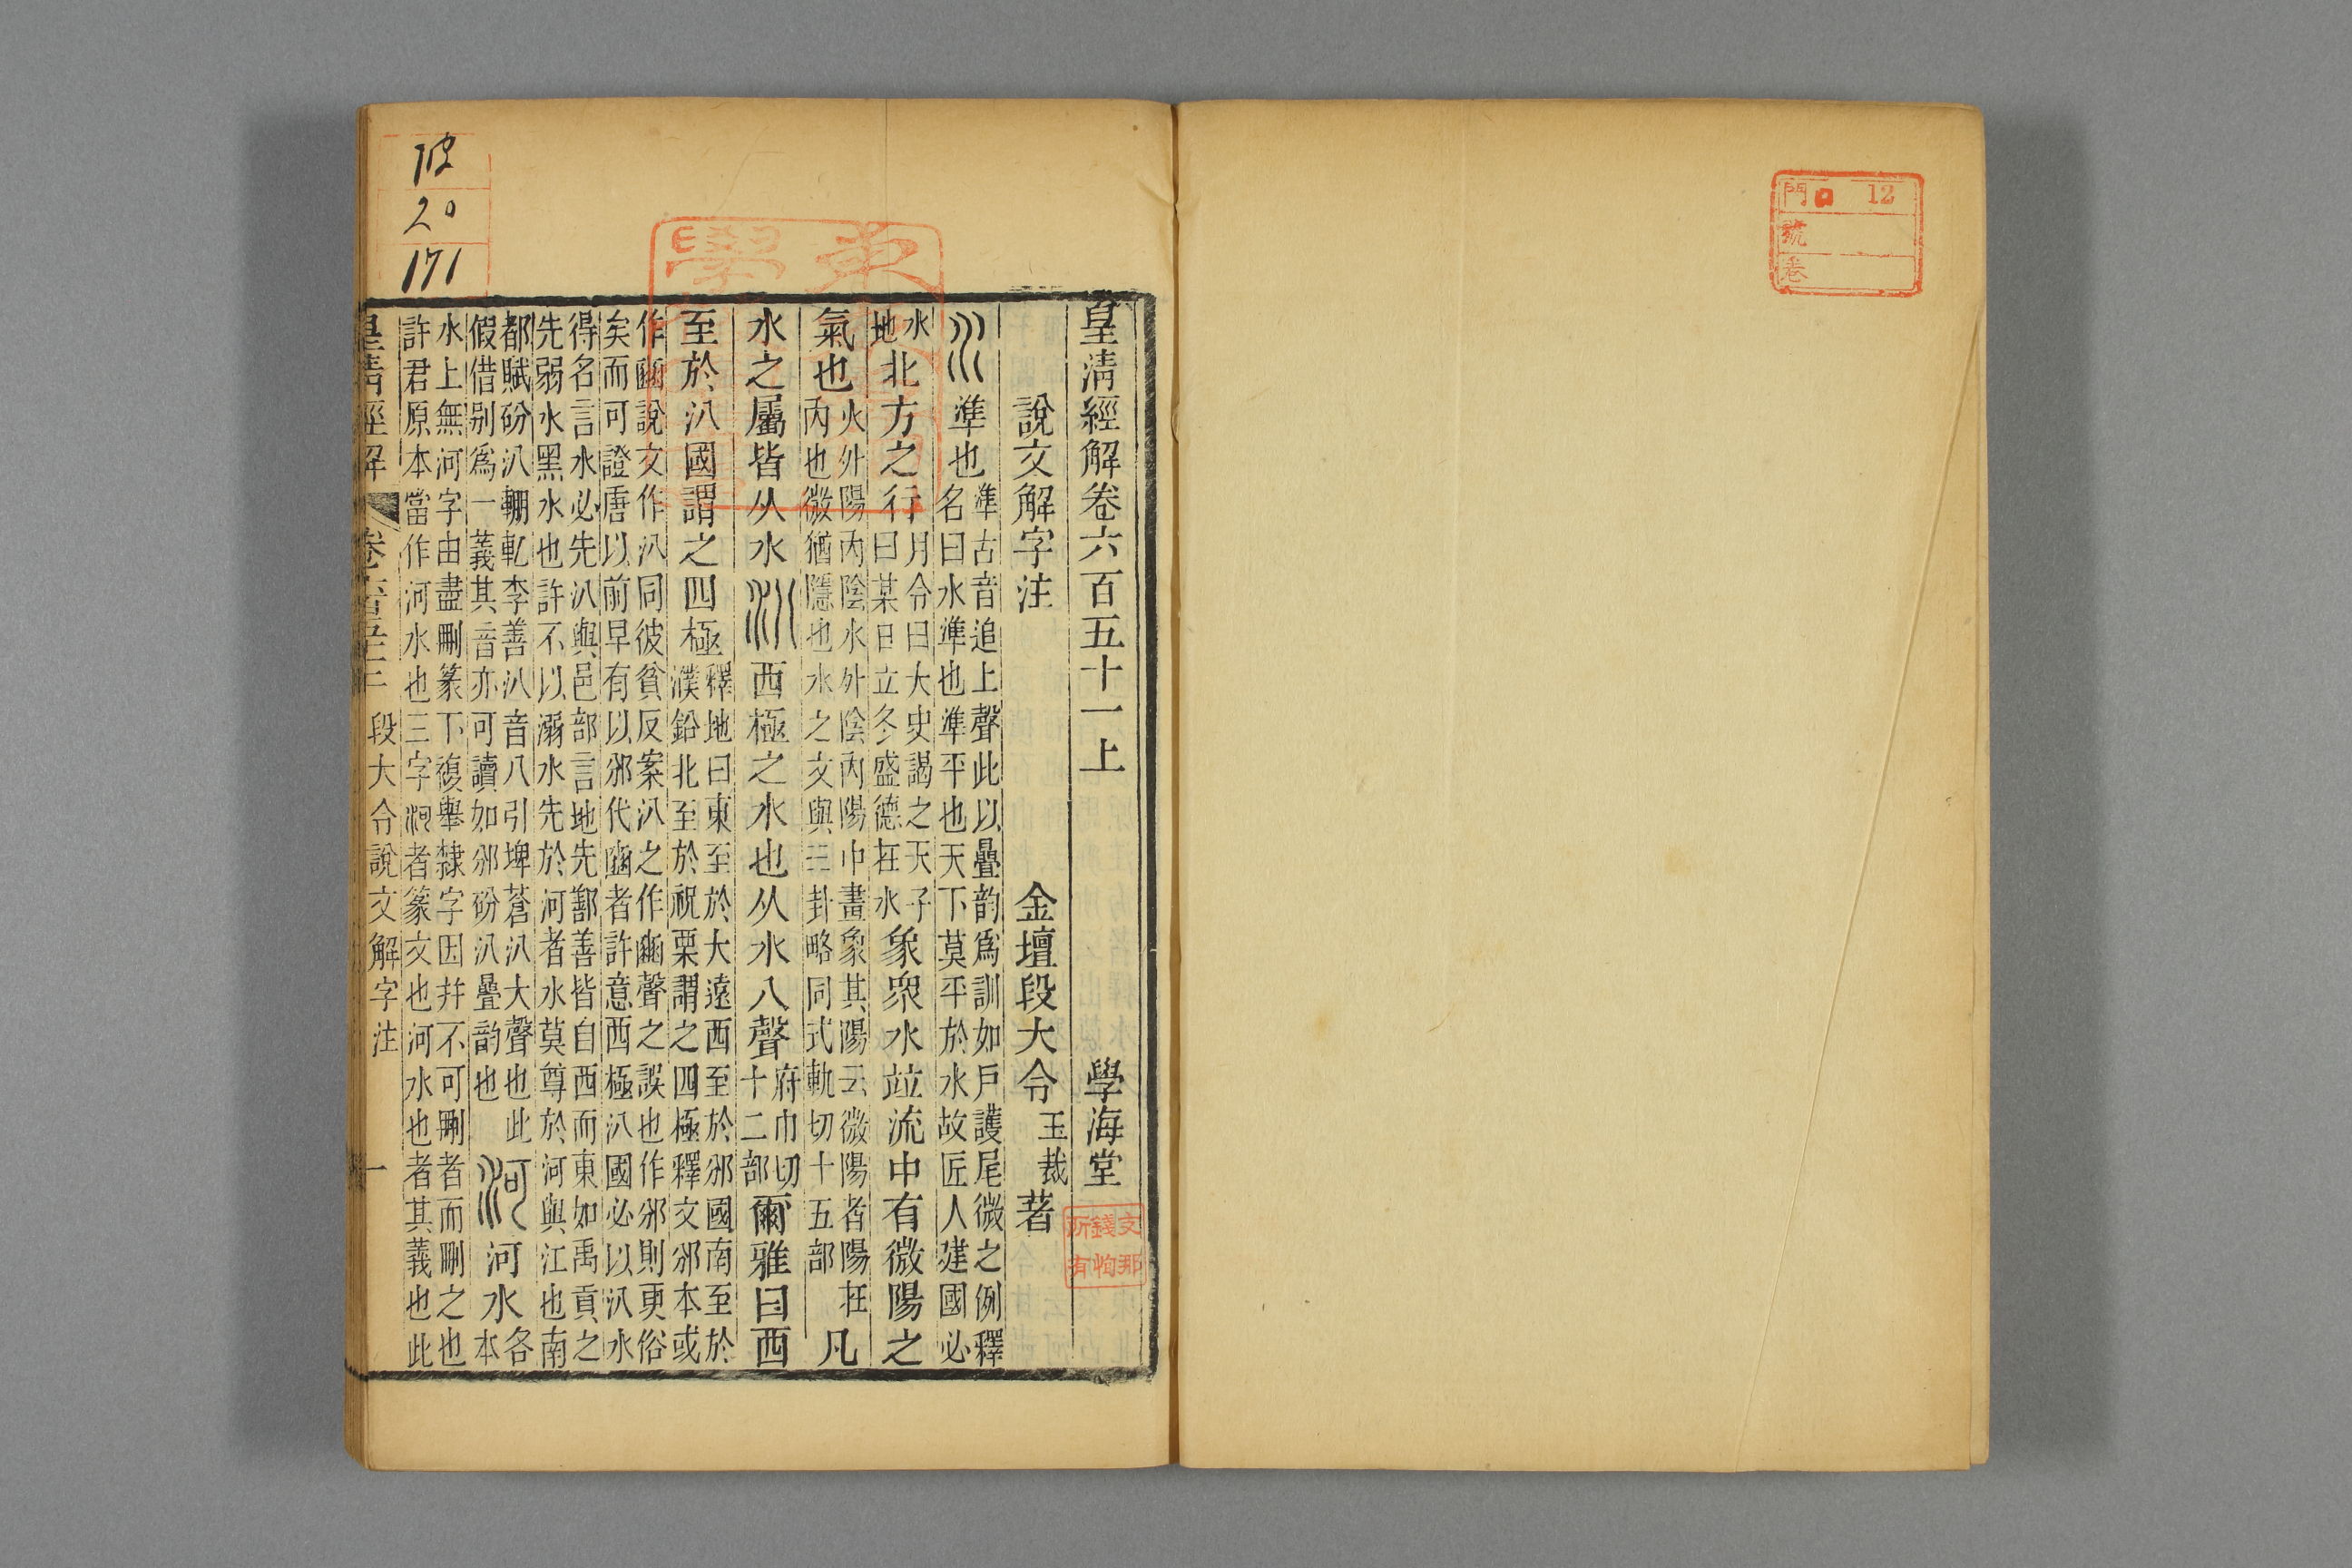 門 12
號
卷
皇清經解卷六百五十一上 學海堂
說文解字注 金壇段大令玉裁著
水 準也準古音追上聲此以疊韵爲訓如戶護尾微之例釋
名曰水準也準平也天下莫平於水故匠人建國必
水地北方之行月令曰大史謁之天子曰某日立冬盛德在水象衆水竝流中有微陽之
氣也火外陽內陰水外陰內陽中畫象其陽云微陽者陽在
內也微猶隱也水之文與☵卦略同式軌切十五部凡
水之屬皆从水 汃 西極之水也从水八聲府巾切十二部爾雅曰西
至於汃國謂之四極釋地曰東至於大遠西至於邠國南至於
濮鉛北至於祝栗謂之四極釋文邠本或
作豳說文作汃同彼貧反案汃之作豳聲之誤也作邠則更俗
矣而可證唐以前早有以邠代豳者許意西極汃國必以汃水
得名言水必先汃與邑部言地先鄯善皆自西而東如禹貢之
先弱水黑水也許不以溺水先於河者水莫尊於河與江也南
都賦砏汃輣軋李善汃音八引埤蒼汃大聲也此
假借別爲一義其音亦可讀如邠砏汃疊韵也 河 河水各本
水上無河字由盡刪篆下複舉隸字因幷不可刪者而刪之也
許君原本當作河水也三字河者篆文也河水也者其義也此
皇清經解 段大令說文解字注 一
20
171